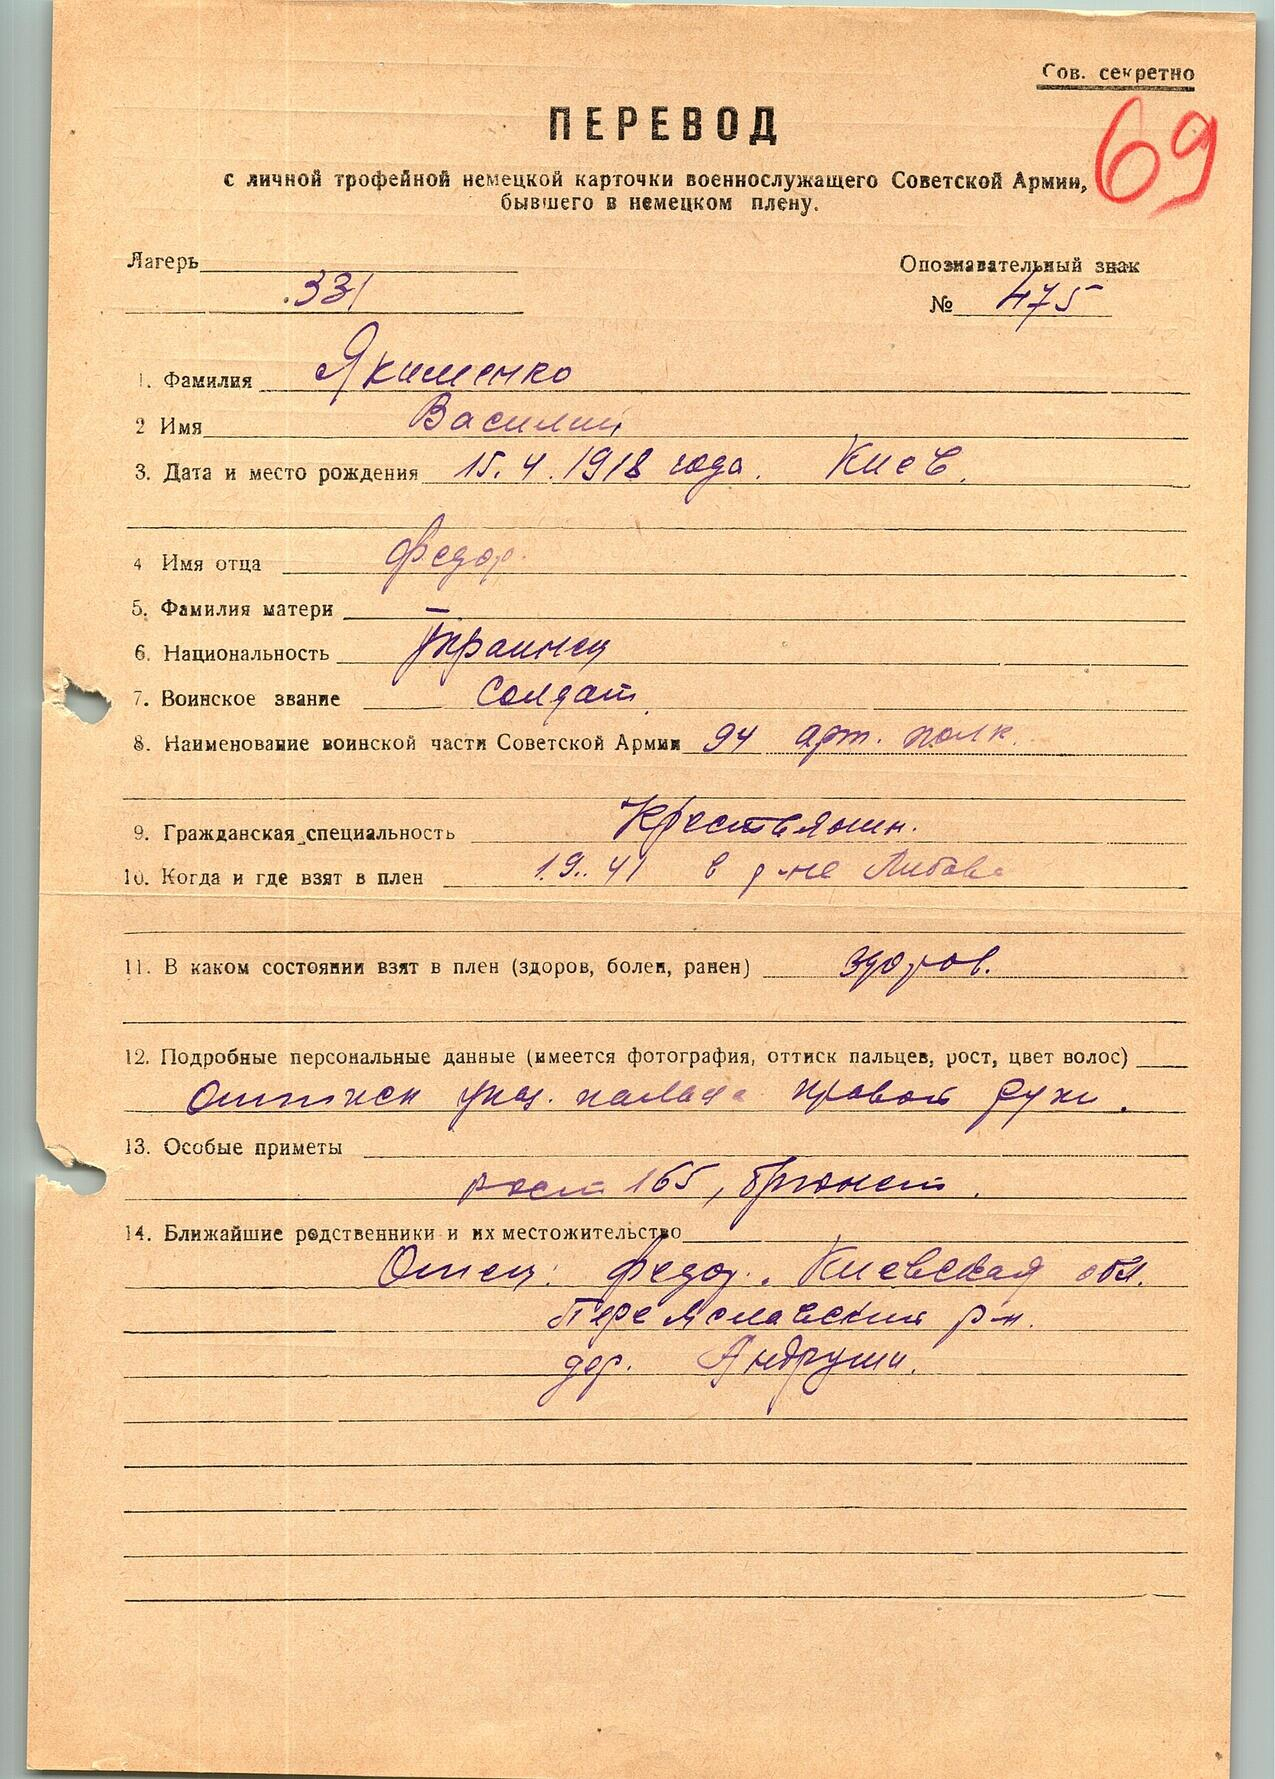 Сов. секретно
69
ПЕРЕВОД
с личной трофейной немецкой карточки военнослужащего Советской Армии,
бывшего в немецком плену.
Лагерь
331
Опознавательный знак
№ 475
1. Фамилия Якименко
2 Имя Василий
3. Дата и место рождения 15.4.1918 года. Киев.
4 Имя отца Федор.
5. Фамилия матери —
6. Национальность Украинец
7. Воинское звание Солдат.
8. Наименование воинской части Советской Армии 94 арт. полк.
9. Гражданская специальность Крестьянин.
10. Когда и где взят в плен 1.9.41 в р-не Либава
11. В каком состоянии взят в плен (здоров, болен, ранен) здоров.
12. Подробные персональные данные (имеется фотография, оттиск пальцев, рост, цвет волос)
Оттиск указ. пальца правой руки.
13. Особые приметы
рост 165, брюнет.
14. Ближайшие родственники и их местожительство
Отец: Федор. Киевская обл.
Переяславский р-н.
дер. Андруши.